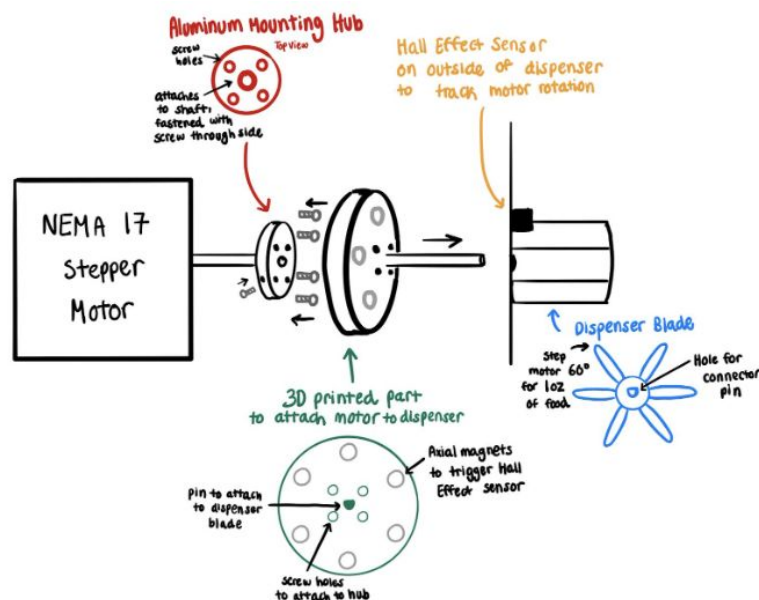 Aluminum Mounting Hub
Top View
screw
holes
attaches
to shaft,
fastened with
screw through side
Hall Effect Sensor
on outside of dispenser
to track motor rotation
NEMA 17
Stepper
Motor
Dispenser Blade
Step
motor 60°
for 1oz
of food
Hole for
connector
pin
3D printed part
to attach motor to dispenser
Axial magnets
to trigger Hall
Effect sensor
pin to attach
to dispenser
blade
screw holes
to attach to hub